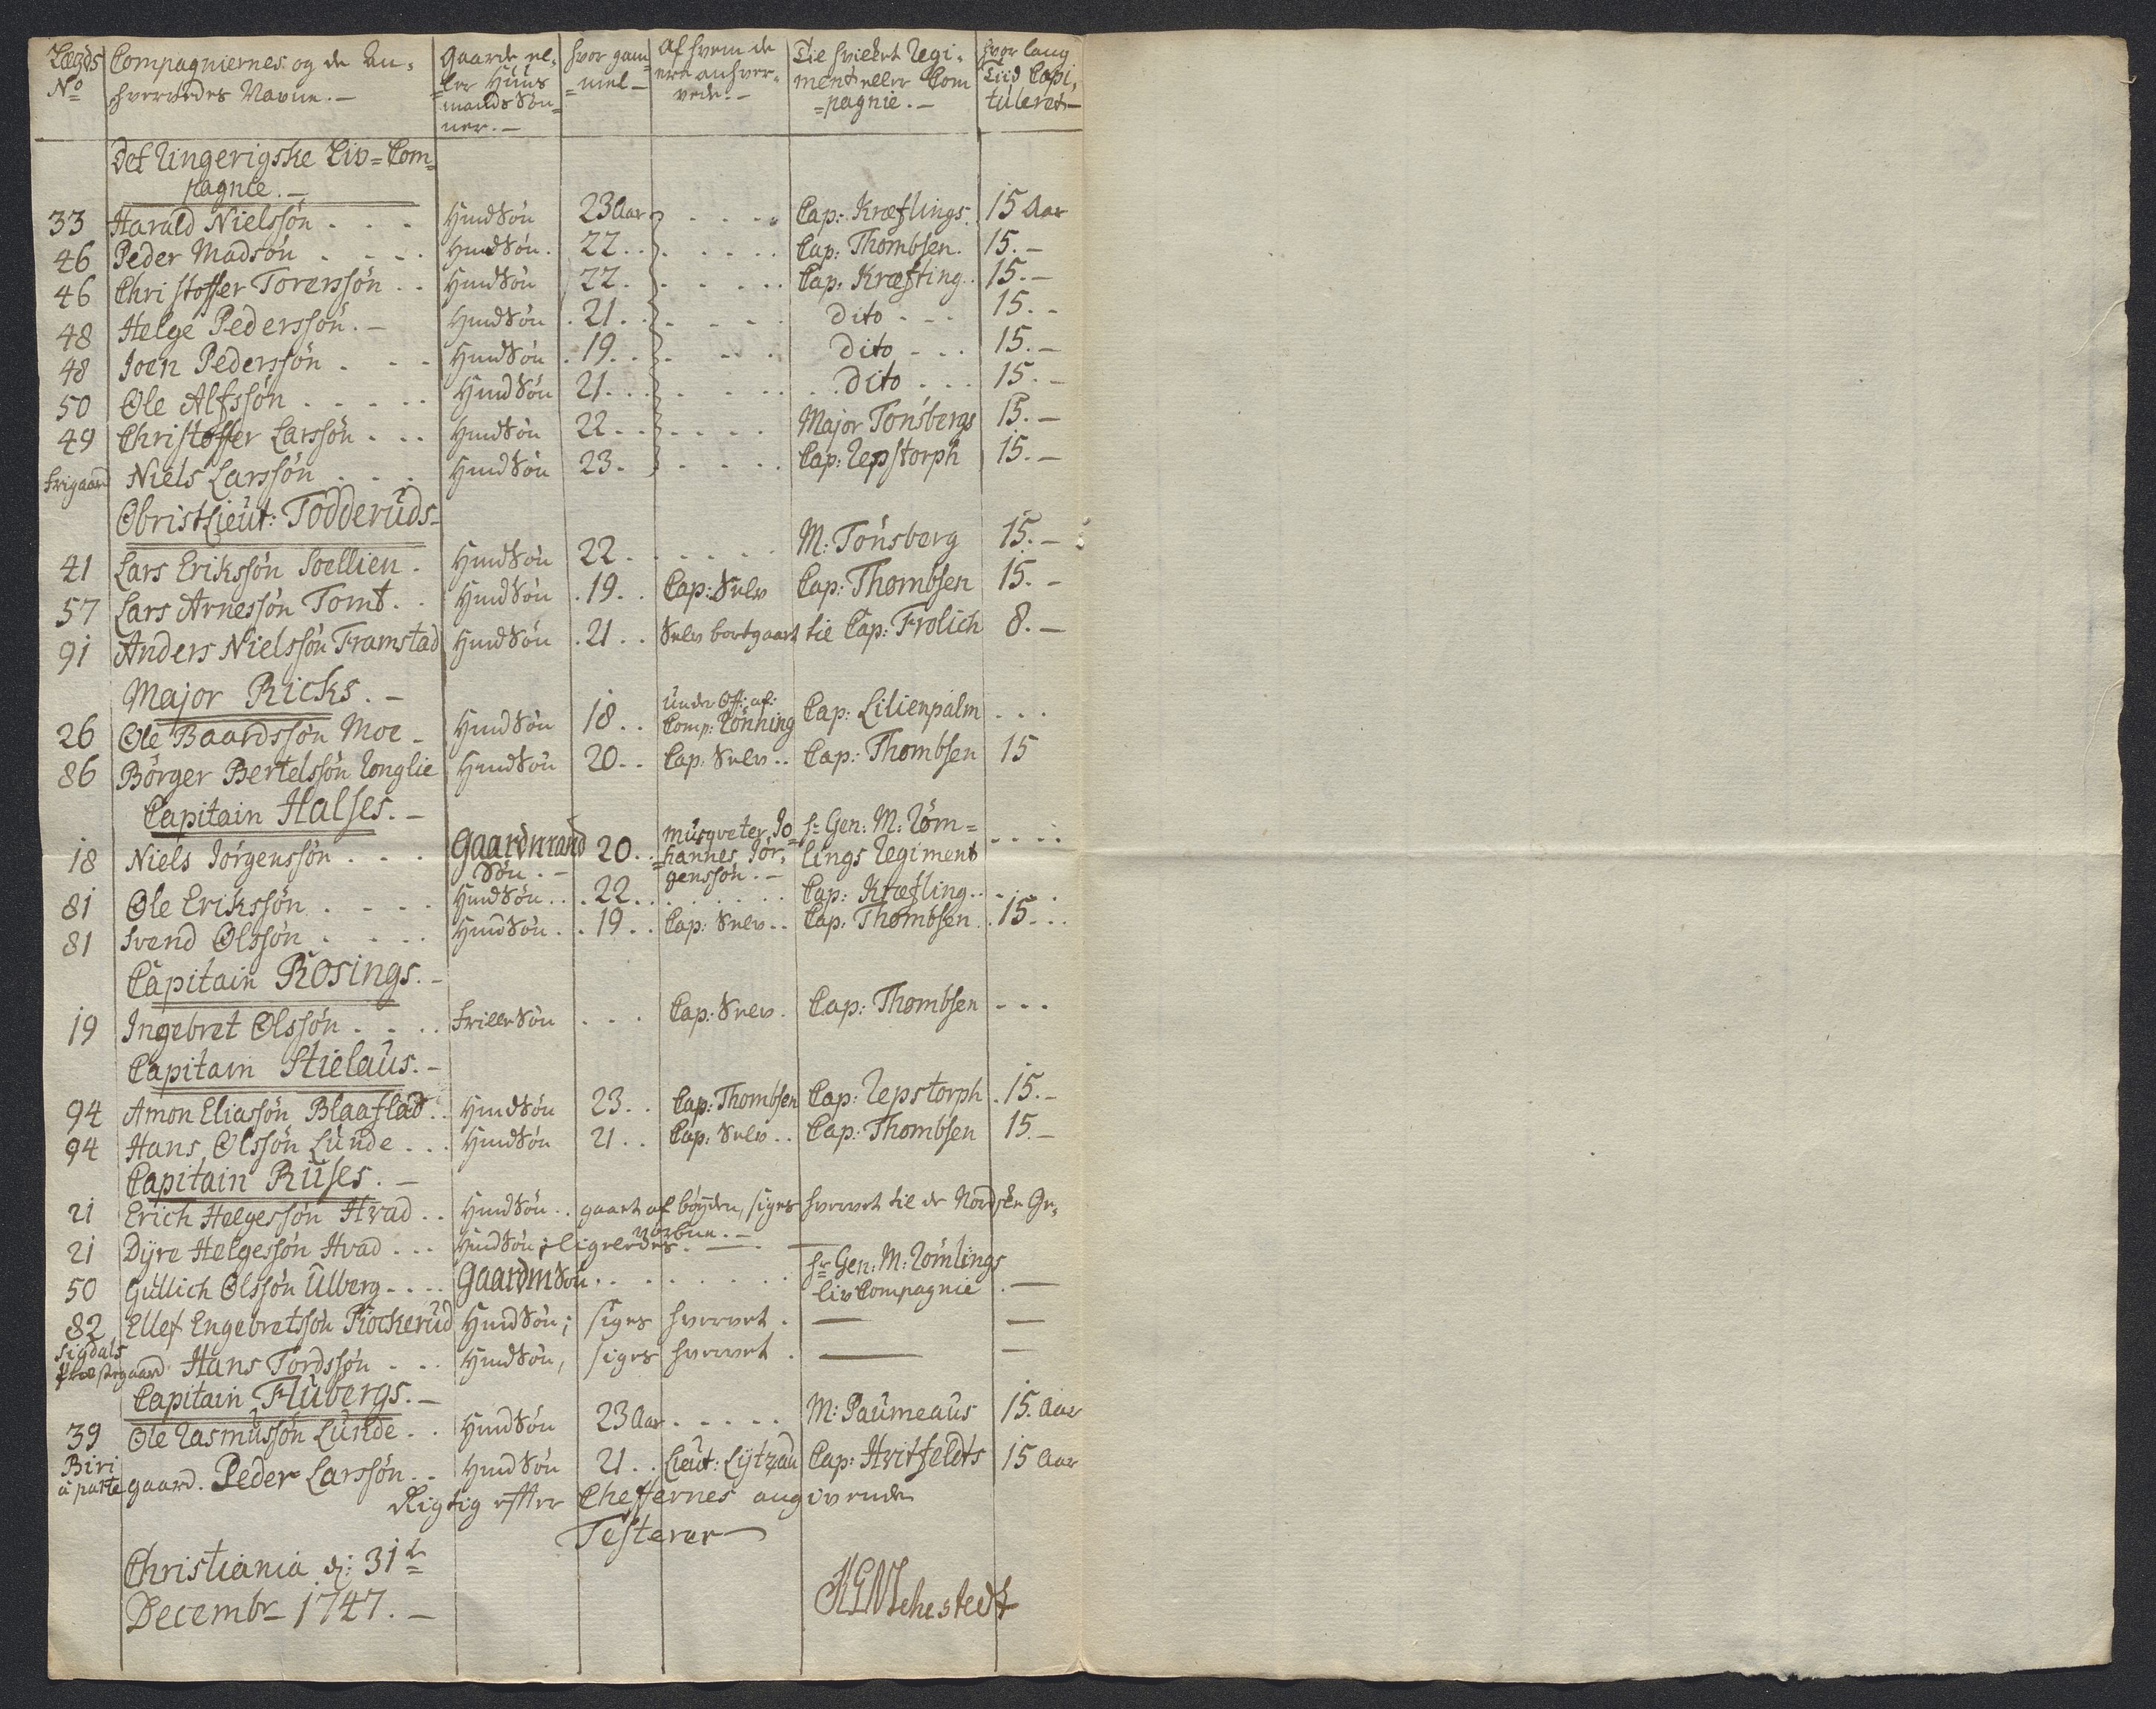 Lægds No | Compagniernes og de An-hvervedes Navne. — | Gaarde el-ler Huus mands Sön-ner. — | hvor gam-mel — | Af hvem de ere anhver-vede. — | Til hvilket Regi-ment eller Com-pagnie. — | hvor lang Tiid Capi-tuleret —
Det Ringerigske Liv=Com=
pagnie. —
33 Harald Nielssön . . . HmdSön 23 Aar . . . . Cap: Kræftings 15 Aar
46 Peder Madsön . . . . HmdSön. 22 . . . . . . Cap: Thombsen. 15. —
46 Christoffer Torerssön . . HmdSön 22. . . . . . Cap. Kræfting . 15. —
48 Helge Pederssön. — HmdSön . 21 . . . . . . Dito . . . 15. -
48 Joen Pederssön . . . HmdSön . 19 . . . . . . Dito . . . 15. —
50 Ole Alfssön . . . . . HmdSön 21 . . . . . . Dito . . . 15. —
49 Christoffer Larssön . . . HmdSön 22 . . . . . . Major Tönsbergs 15. —
frigaard Niels Larssön . . . HmdSön 23. . . . . Cap: Repstorph 15. —
ObristLieut: Todderuds-
41 Lars Erikssön Soellien . HmdSön 22 . . . . . . M: Tönsberg 15. —
57 Lars Arnessön Tomt . . HmdSön . 19. . Cap: Selv Cap: Thombsen 15. -
91 Anders Nielssön Framstad HmdSön . 21 . . Selv bortgaaet til Cap: Frolich 8. —
Major Ricks. —
26 Ole Baardssön Moe - HmdSön 18 . . Under Off: af: Comp: Rönning Cap: Lilienpalm . . .
86 Börger Bertelssön Ronglie HmdSön 20. . Cap: Selv . . Cap: Thombsen 15
Capitain Halses. —
18 Niels Jörgenssön . . . Gaardmand Sön . — 20. . Musqveter Jo=hannes Jör=genssön. — hr Gen: M: Röm=lings Regiment . . . .
81 Ole Erikssön . . . . HmdSön . . . 22 . . . . . . . Cap: Kræfting . . - .
81 Svend Olssön . . . . HmdSön . . 19 . . Cap: Selv . . Cap: Thombsen . 15. . .
Capitain Rosings. —
19 Ingebret Olssön . . . . frilleSön . . . Cap: Selv . Cap: Thombsen - - -
Capitain Stielaus. —
94 Amon Eliassön Blaaflad . . HmdSön 23. . Cap: Thombsen Cap: Repstorph . 15. —
94 Hans Olssön Lunde . . . HmdSön 21 . . Cap: Selv . . Cap: Thombsen 15. —
Capitain Ruses. —
21 Erich Helgessön Hvad . . HmdSön . . gaaet af böyden, siges hvervet til de Nordske Ge-
vorbne. —
21 Dyre Helgessön Hvad . . . HmdSön; ligeledes. — —
50 Gullich Olssön Ulberg . . . . GaardmSön . . . . . . . hr Gen: M: Römlings liv Compagnie . —
82 Ellef Engebretssön Kockerud HmdSön; siges hvervet . — —
Sigdals Præstegaard Hans Tordssön . . . HmdSön, siges hvervet . — —
Capitain Flubergs. —
39 Ole Rasmussön Lunde . . HmdSön 23 Aar . . . . . M: Paumeaus 15. Aar
Biri à parte gaard. Peder Larssön . . HmdSön 21 . . Lieut: Lytzau Cap: Hvitfeldts 15 Aar
Rigtig efter Cheffernes angivende
Testerer
Christiania d: 31te
Decembr 1747. —